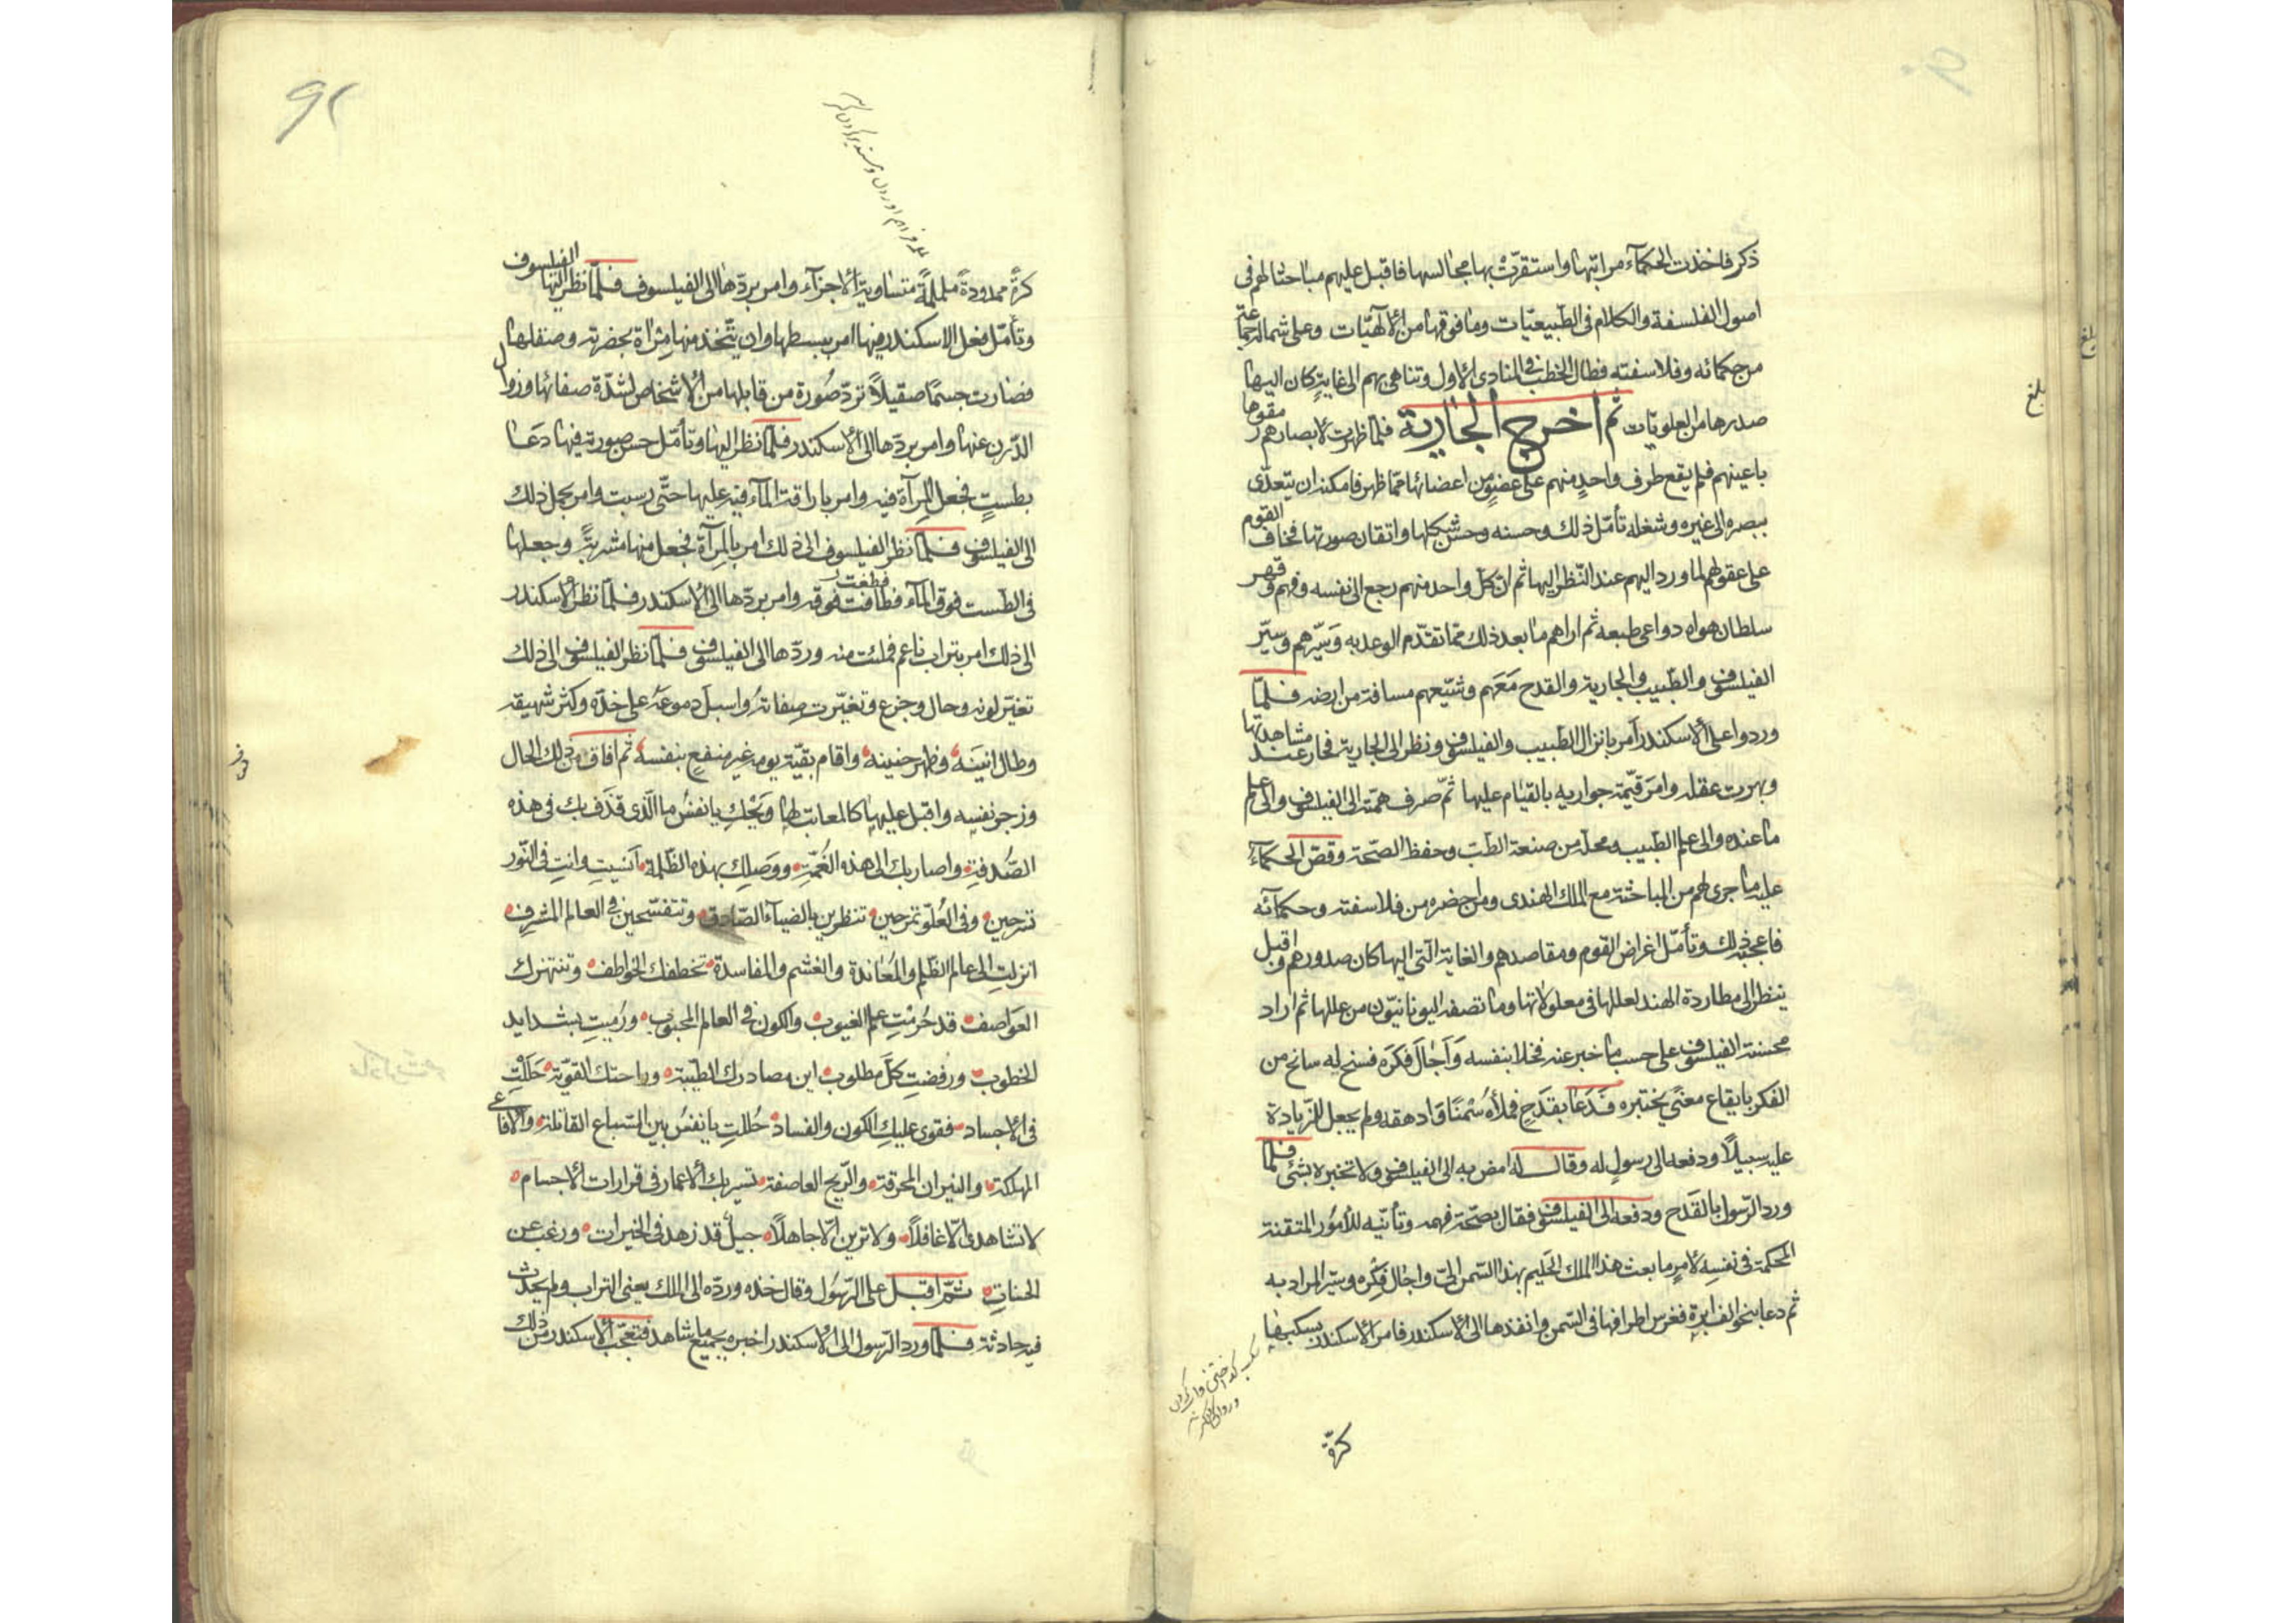 ذكر فاخذت الحكمآء مراتبها واستقرّت بها مجالسها فاقبل عليهم مباحثا لهم فى
اصول الفلسفة والكلام فى الطّبيعيّات وما فوقها من الالٓهيّات وعلى شماله جماعة
من حكمائه وفلاسفته فطال الخطب فى المنادى الاول وتناهى بهم الى غاية كان اليها
صدرها من العلويات ثم اخرج الجارية فلمّا ظهرت لابصارهم رمقوها
باعينهم فلم يقع طرف واحدٍ منهم على عضوٍ من اعضائها ممّا ظهر فامكنه ان يتعدّى
ببصره الى غيره وشغله تأمّل ذلك وحسنه وحسن شكلها واتقان صورتها فخاف القوم
على عقولهم لما ورد اليهم عند النّظر اليها ثم انّ كلّ واحد منهم رجع الى نفسه وفهم وقهر
سلطان هواه دواعى طبعه ثم اراهم ما بعد ذلك ممّا تقدّم الوعد به وسيّرهم وسيّر
الفيلسوف والطّبيب والجارية والقدح مَعَهم وشيّعهم مسافة من ارضه فلمّا
وردوا على الاسكندر أمر بانزال الطّبيب والفيلسوف ونظر الى الجارية فحار عند مشاهدتها
وبهرت عقله وامر قيّمة جواريه بالقيام عليها ثمّ صرف همّته الى الفيلسوف والى علم
ما عنده والى علم الطّبيب ومحلّه من صنعة الطبّ وحفظ الصّحّة وقصّ الحكمآء
عليه ما جرى لهم من المباحثة مع الملك الهندى ومن حضره من فلاسفته وحكمآئه
فاعجبه ذلك وتأمّل اغراض القوم ومقاصدهم والغاية الّتى اليها كان صدورهم واقبل
ينظر الى مطاردة الهند لعللها فى معلولاتها وما تصفه اليونانيّون من عللها ثم اراد
محنة الفيلسوف على حسب ما خبر عنه فخلا بنفسه وَاَجَالَ فكره فسنح له سانح من
الفكر بايقاع معنًى يختبره فَدَعَا بقدَحٍ فملأه سُمْنًا وَادهقه ولم يجعل للزّيادة
عليه سبيلًا ودفعه الى رسولٍ له وقال له امض به الى الفيلسوف ولا تخبره بشئ فلمّا
ورد الرّسول بالقدح ودفعه الى الفيلسوف فقال بصحّة فهمه وتأنّيه للأمُور المتقنة
المحكمة فى نفسه لامرٍ ما بعث هذا الملك الحَليم بهذا السّمن الىّ واجال فِكْره وسبر المراد به
ثم دعا بنحو الف ابرة فغرس اطرافها فى السّمن وانفذها الى الاسكندر فامر الاسكندر بسكبها
كرّة
٩٢
كرّةً ممدودةً ململمةً متساوية الاجزآء وامر بردّها الى الفيلسوف فلمّا نظر اليها الفيلسوف
وتأمّل فعل الاسكندر فيها امر ببسطها وان يتّخذ منها مِراٰة بحضرته وصقلها
فصارت جسمًا صقيلًا تردّ صُورة من قابلها من الاشخاص لشدّة صفائها وزوال
الدّرن عنها وامر بردّها الى الاسكندر فلمّا نظر اليها وتأمّل حسن صورته فيها دَعَا
بطستٍ فجعل المِرآة فيه وامر باراقة المآء فيه عليها حتّى رسبت وامر بحمل ذلك
الى الفيلسوف فلمّا نظر الفيلسوف الى ذلك امر بالمِرآة فجعل منها مشربةً وجعلها
فى الطّست فوق المآء فطافت فوقه وامر بردّها الى الاسكندر فلمّا نظر الاسكندر
فطغت
الى ذلك امر بتراب ناعم فملئت منه وردّها الى الفيلسوف فلمّا نظر الفيلسوف الى ذلك
تغيّر لونه وحال وجزع وتغيّرت صِفاتهُ واسبل دموعَهُ على خدّه وكثر شهيقه
وطال انينَه وظهر حنينه واقام بقيّة يومه غير منتفعٍ بنفسه ثم افاق من ذلك الحال
وزجر نفسه واقبل عليها كالمعاتب لها وَيْحكِ يا نفسُ ما الّذى قذف بك فى هذه
الصُّدفة واصار بك الى هذه الغُمّةِ ووَصلِك بهذه الظّلمة اَنَسيتِ وانتِ فى النّور
تسرحين وفى العُلوّ تمرحين تنظرين بالضيآء الصّادق وتتفسّحين فى العالم المشرِف
انزلتِ الى عالم الظّلم والمُعاندة والغشم والمفاسدة تخطفك الخواطف وتنتهزك
العَوَاصف قد حُرمْتِ علم الغيوب والكون فى العالم المحبوب ورُميتِ بشدايد
الخطوب ورفضتِ كلّ مطلوب اين مصادرك الطّيبة وراحتك القويّة حَلَلْتِ
فى الاجساد فقوى عليكِ الكون والفساد حُللتِ يا نفسُ بين السّباع القاتلة والافاعى
المهلكة والنيران المحرقة والرّيح العاصفة تسير بك الاعمار فى قرارات الاجسام
لا تشاهدى الّا غافلًا ولا ترين الّا جاهلًا جيل قد زهد فى الخيرات ورغب عن
الحسنات ثمّ اقبل على الرّسُول وقال خذه وردّه الى الملك يعنى التراب ولم يحدث
فيه حادثة فلمّا ورد الرّسول الى الاسكندر اخبره بجميع ما شاهد فتعجّب الاسكندر من ذلك
بلغ